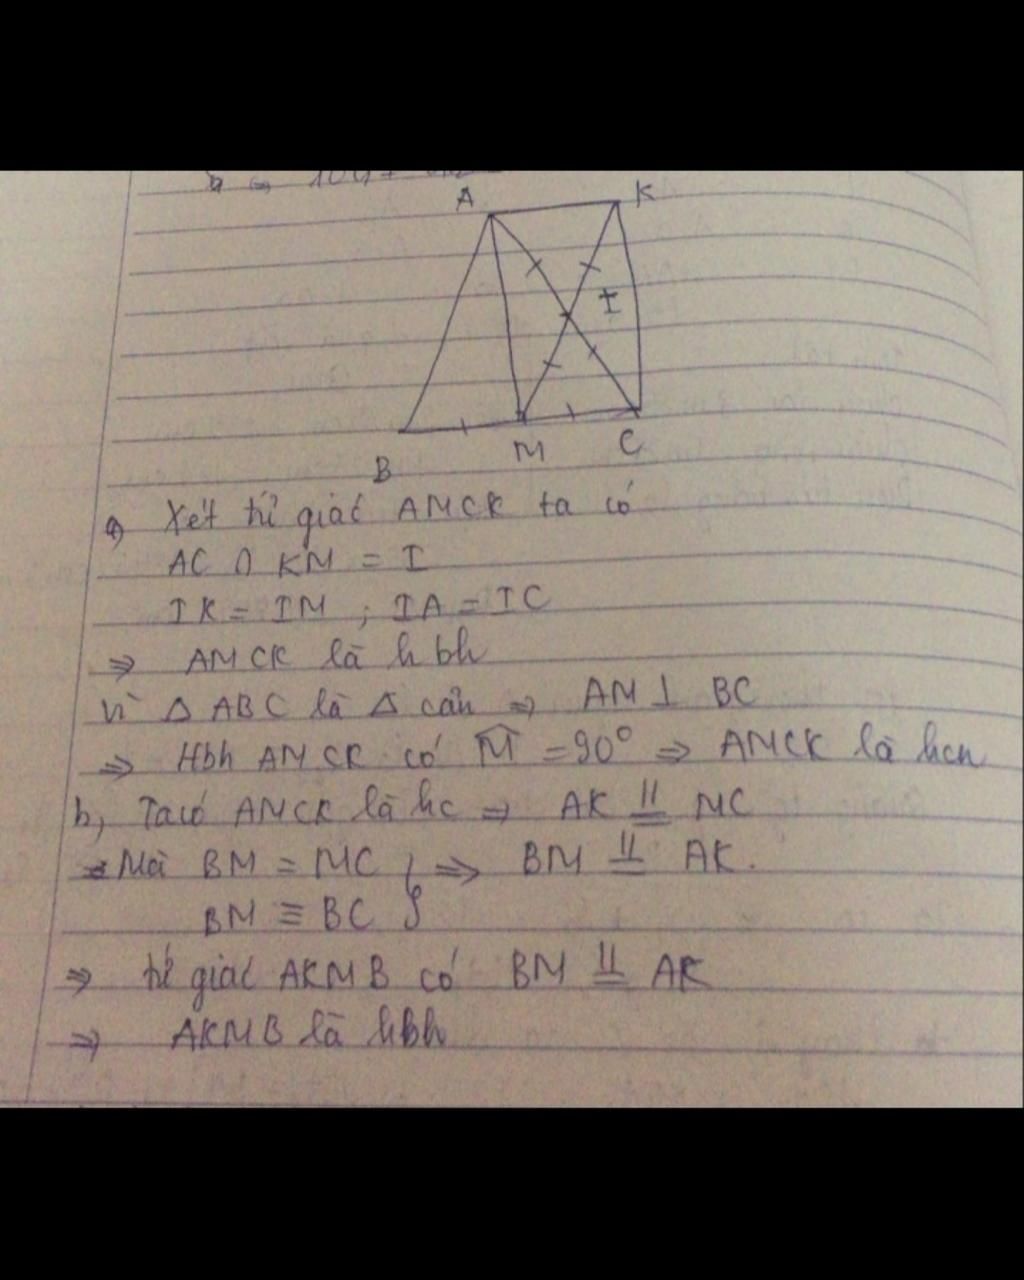 A K
I
B M C
a, Xét tứ giác AMCK ta có
AC ∩ KM = I
IK = IM ; IA = IC
⇒ AMCK là hbh
Vì Δ ABC là Δ cân ⇒ AM ⊥ BC
⇒ Hbh AMCK có M̂ = 90° ⇒ AMCK là hcn
b, Ta có AMCK là hc ⇒ AK // = MC
Mà BM = MC } ⇒ BM // = AK.
BM ≡ BC
⇒ tứ giác AKMB có BM // = AK
⇒ AKMB là hbh